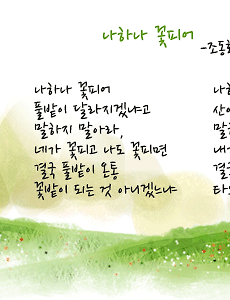 나하나 꽃피어
-조동화
나하나 꽃피어
풀밭이 달라지겠냐고
말하지 말아라,
네가 꽃피고 나도 꽃피면
결국 풀밭이 온통
꽃밭이 되는 것 아니겠느냐
나하
산이
말하
내가
결국
타오